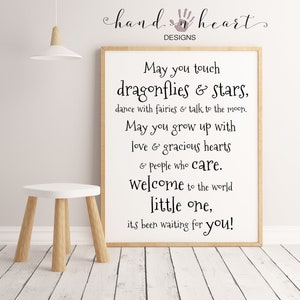 hand n heart
DESIGNS
May you touch
dragonflies & stars,
dance with fairies & talk to the moon.
May you grow up with
love & gracious hearts
& people who care.
Welcome to the world
little one,
its been waiting for you!